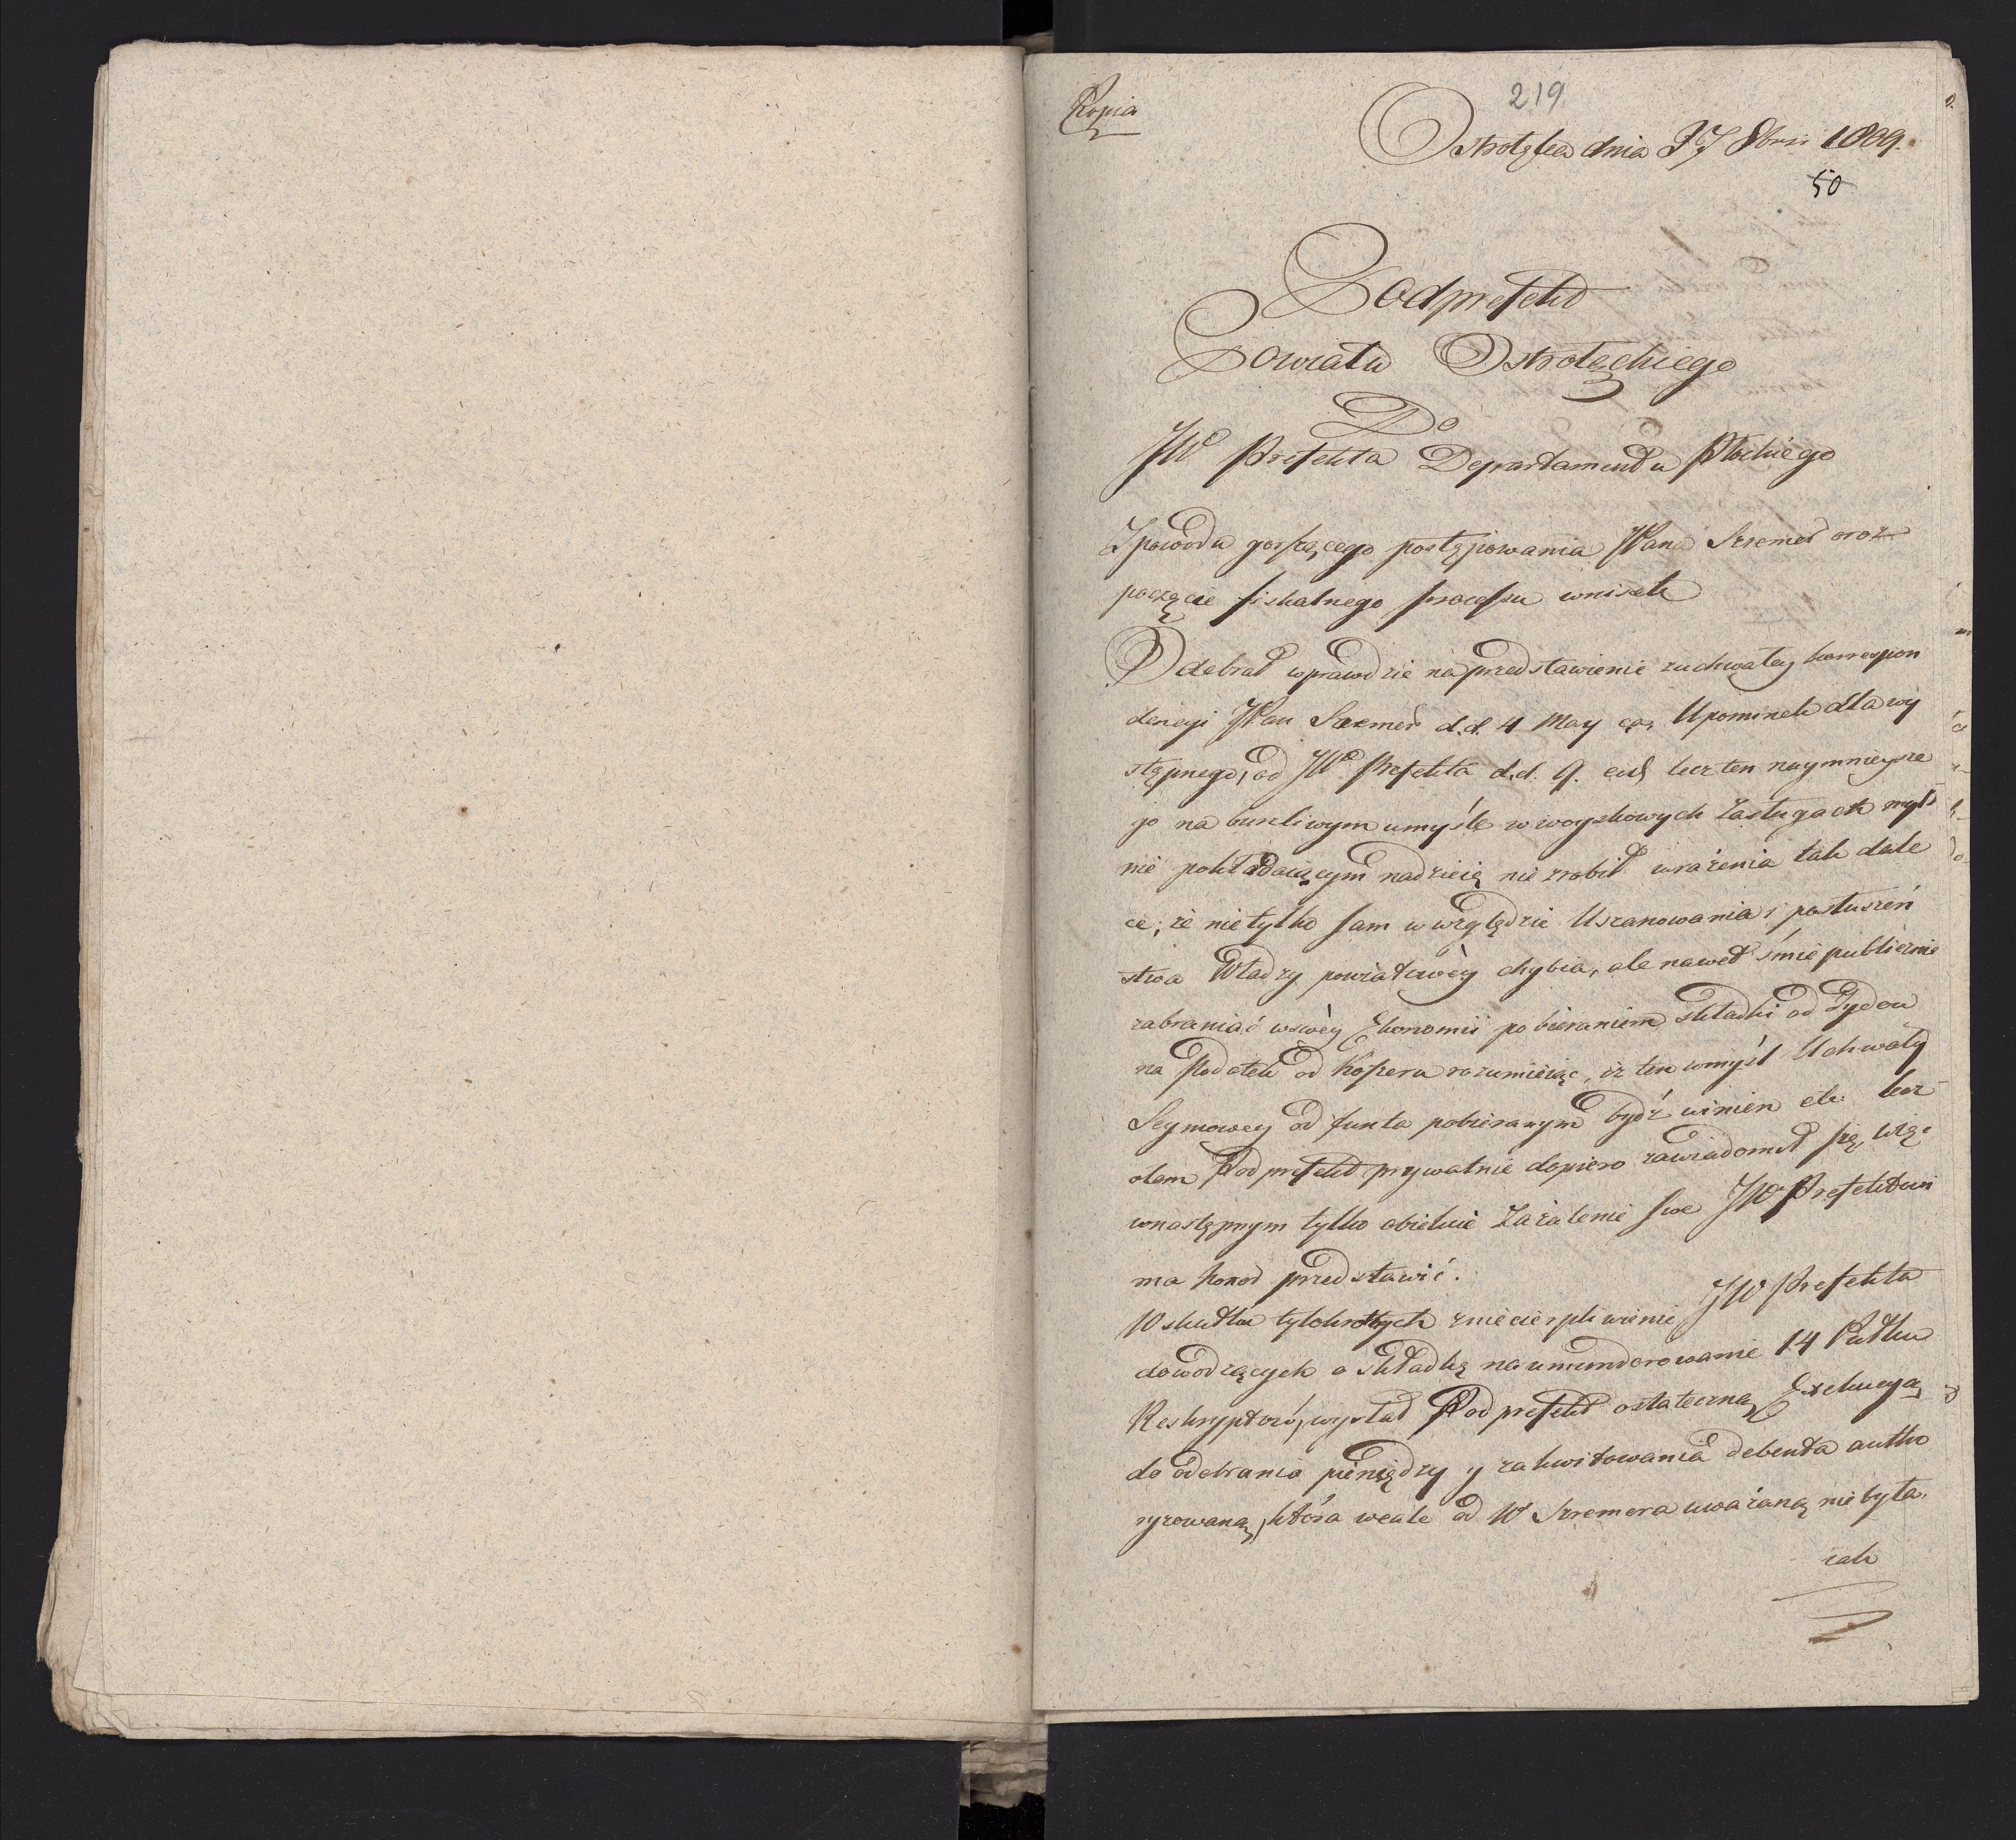 219
Kopia
Ostrołęka dnia 27 8bris 1809.
50
Podprefekt
Powiatu Ostrołęckiego
Do
JW Prefekta Departamentu Płockiego
Z powodu gorszącego postępowania JPana Szremer oraz
poczęcie fiskalnego processu wniosek
Odebrał wprawdzie na przedstawienie zuchwałey korrespon
dencyi JPan Szremer d.d. 4 May Upominek dla wy
stępnego, od JW Prefekta d.d. 9. lecz ten naymnieysze
go na burzliwym umyśle w woyskowych zasługach myl
nie pokładaiącym nadzieię nie zrobił wrażenia tak dale
ce; że nie tylko sam w względzie Uszanowania i posłuszeń
stwa Władzy powiatowèy chybia, ale nawet śmie publicznie
zabraniać w swèy Ekonomii pobieraniem składki od Żydow
na Podatek od Koszeru rozumieiąc, iż ten w myśl Uchwały
Seymowey od funta pobieranym bydź winien etc. lecz
otem Podprefekt prywatnie dopiero zawiadomił się, więc
w następnym tylko obiekcie Zażalenie swe JW Prefektowi
ma honor przedstawić.
W skutku tylokrotnych zniecierpliwienie JW Prefekta
dowodzących o składkę na umundorowanie 14 Pułku
Reskryptów, wysłał Podprefekt ostateczną Exekucyą
do odebrania pieniędzy y zakwitowania debenta autho
ryzowaną, która wcale od W Szremera uważaną nie była.
iak